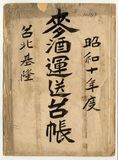 昭和十年度
麥酒運送台帳
台北基隆